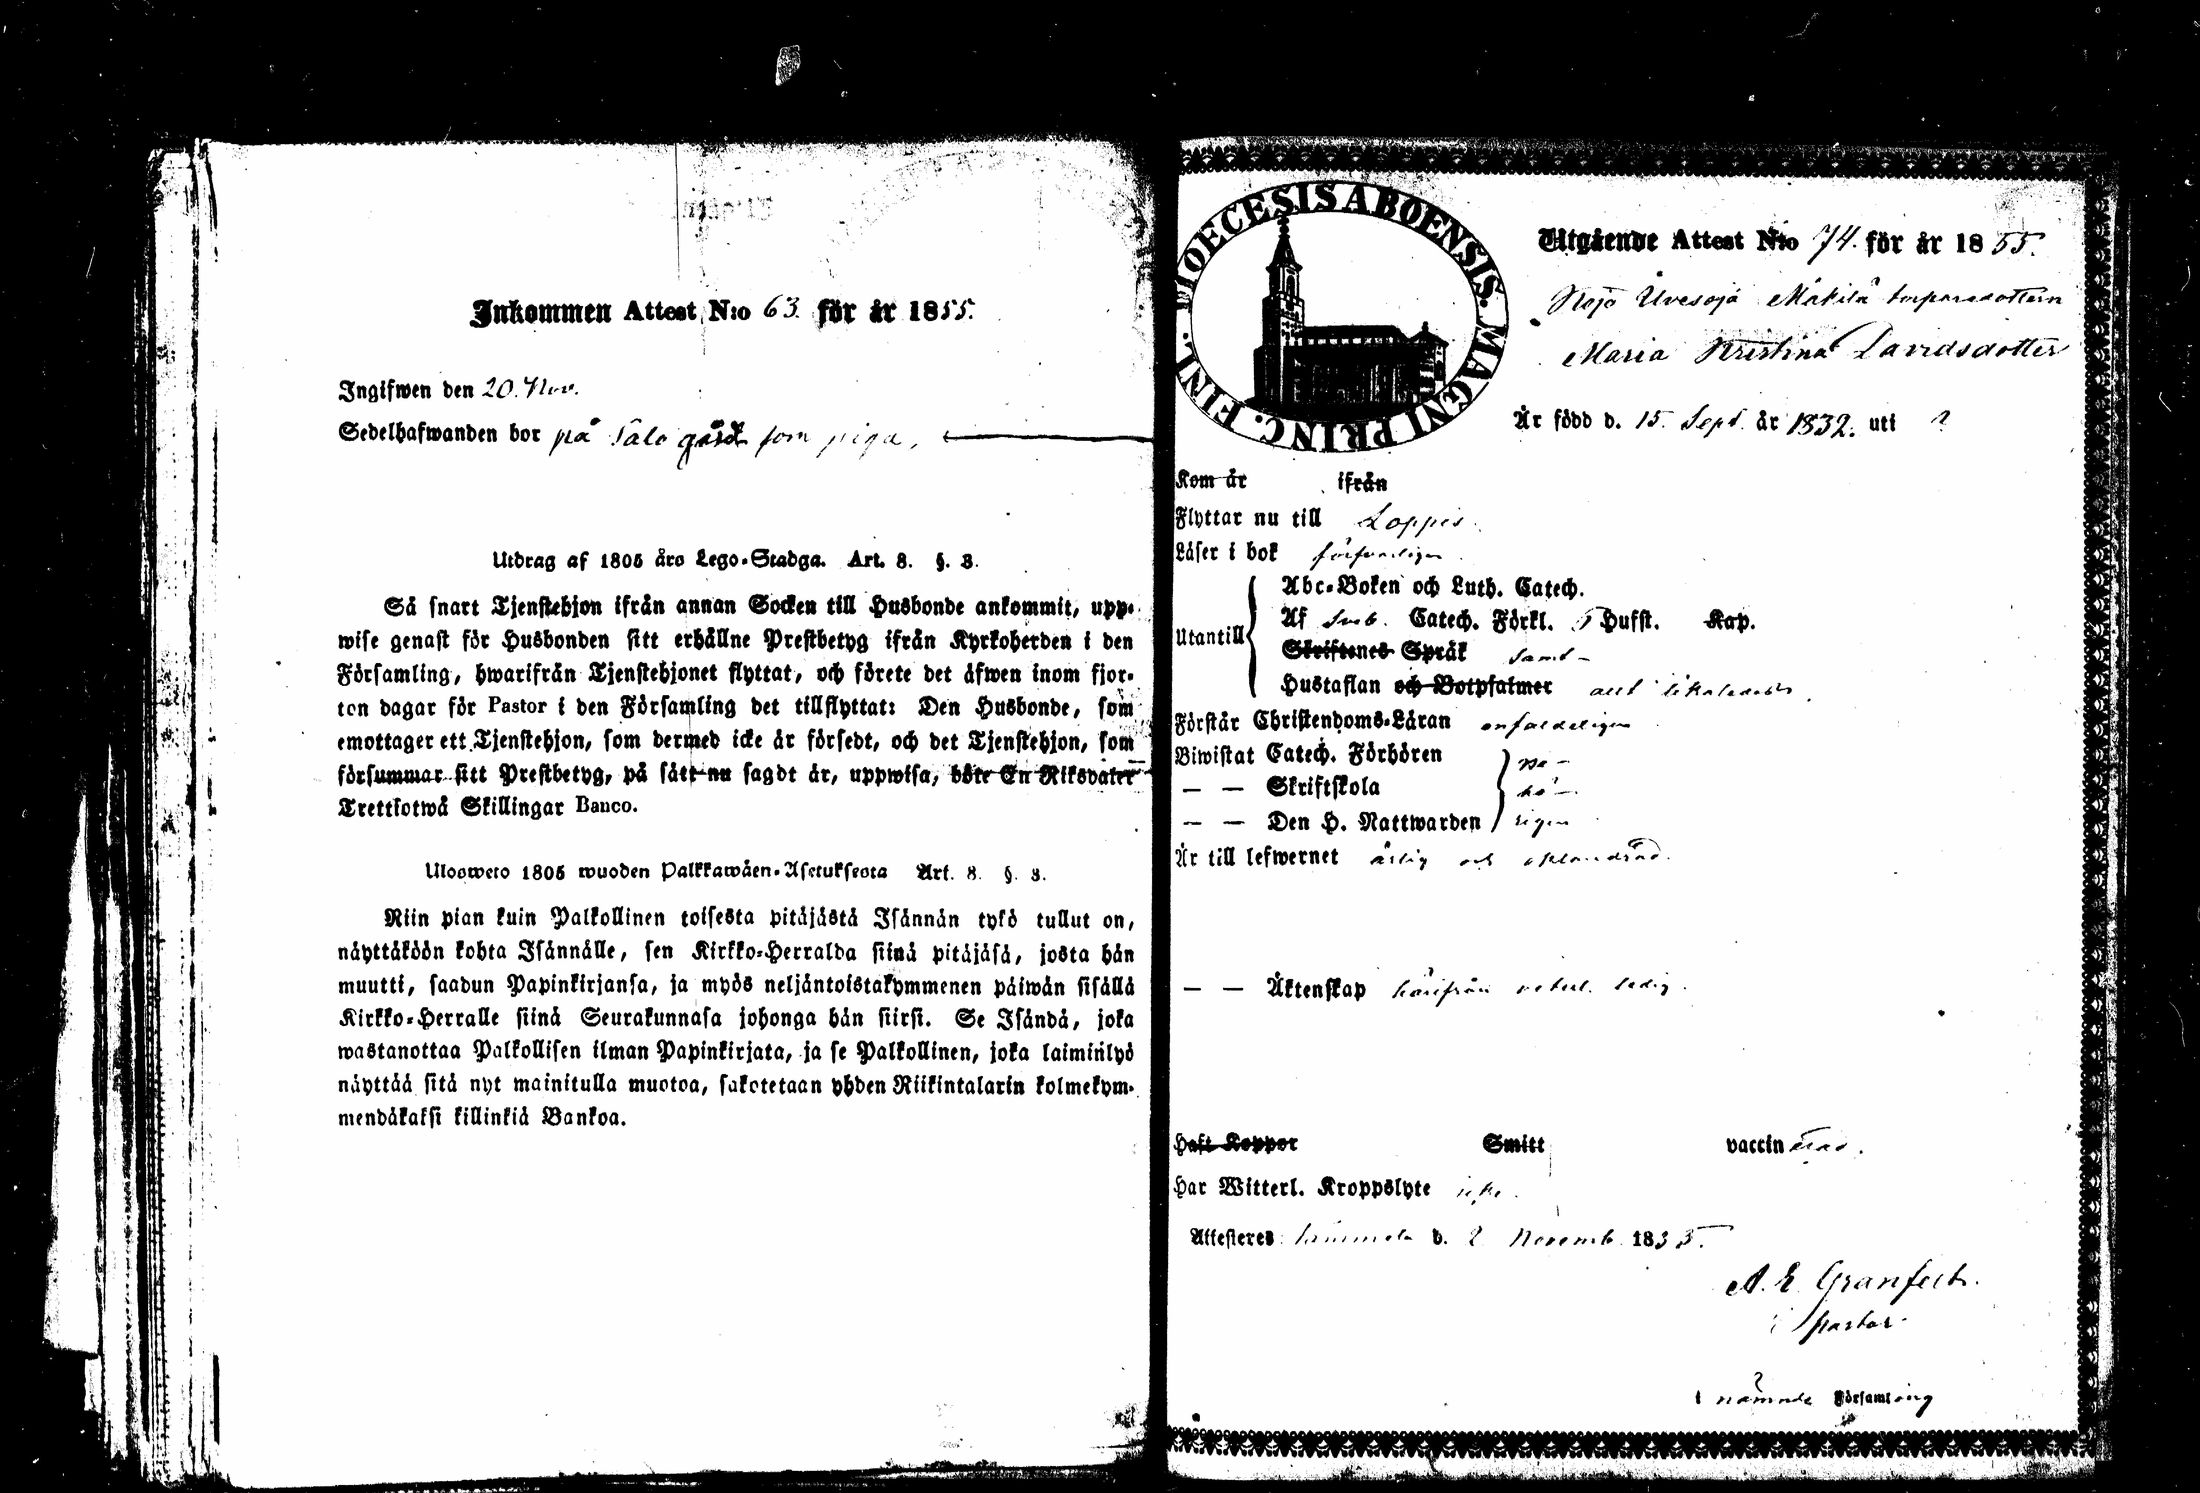 Inkommen Attest N:o 63. för år 1855.
Ingifwen den 20. Nov.
Sedelhafwanden bor på Salo gård som piga,
Utdrag af 1805 års Lego-Stadga. Art. 8. §. 3.
Så snart Tjenstehjon ifrån annan Socken till Husbonde ankommit, upp-
wise genast för Husbonden sitt erhållne Prestbetyg ifrån Kyrkoherden i den
Församling, hwarifrån Tjenstehjonet flyttat, och förete det äfwen inom fjor-
ton dagar för Pastor i den Församling det tillflyttat: Den Husbonde, som
emottager ett Tjenstehjon, som dermed icke är försedt, och det Tjenstehjon, som
försummar sitt Prestbetyg, på sätt nu sagdt är, uppwisa, böte En Riksdaler
Trettiotwå Skillingar Banco.
Ulosweto 1805 wuoden Palkkawäen-Asetuksesta Art. 8. §. 3.
Niin pian kuin Palkollinen toisesta pitäjästä Isännän tykö tullut on,
näyttäköön kohta Isännälle, sen Kirkko-Herralda siinä pitäjäsä, josta hän
muutti, saadun Papinkirjansa, ja myös neljäntoistakymmenen päiwän sisällä
Kirkko-Herralle siinä Seurakunnasa johonga hän siirsi. Se Isändä, joka
wastanottaa Palkollisen ilman Papinkirjata, ja se Palkollinen, joka laiminlyö
näyttää sitä nyt mainitulla muotoa, sakotetaan yhden Riikintalarin kolmekym-
mendäkaksi killinkiä Bankoa.
DIOECESIS ABOENSIS. MAGNI PRINC. FINL.
Utgående Attest N:o 74. för år 1855.
Mäkilä
Maria Kristina Davidsdotter
Är född d. 15. Sept. år 1832. uti ?
Kom år ifrån
Flyttar nu till Loppis.
Läser i bok försvarligen
Utantill
Abc-Boken och Luth. Catech.
Af Sveb. Catech. Förkl. 5 Hufst. Kap.
Skriftenes Språk samt
Hustaflan och Botpsalmer allt likaledes.
Förstår Christendoms-Läran enfaldeligen
Biwistat Catech. Förhören ve-
— — Skriftskola hö-
— — Den H. Nattwarden rigen
Är till lefwernet ärlig och oklandrad.
— — Äktenskap härifrån veterl. ledig.
Haft Koppor Smitt vaccinerad.
Har Witterl. Kroppslyte icke.
Attesteras d. 2 Novemb. 1855.
A. E. Granfelt.
pastor
i nämnde Församling